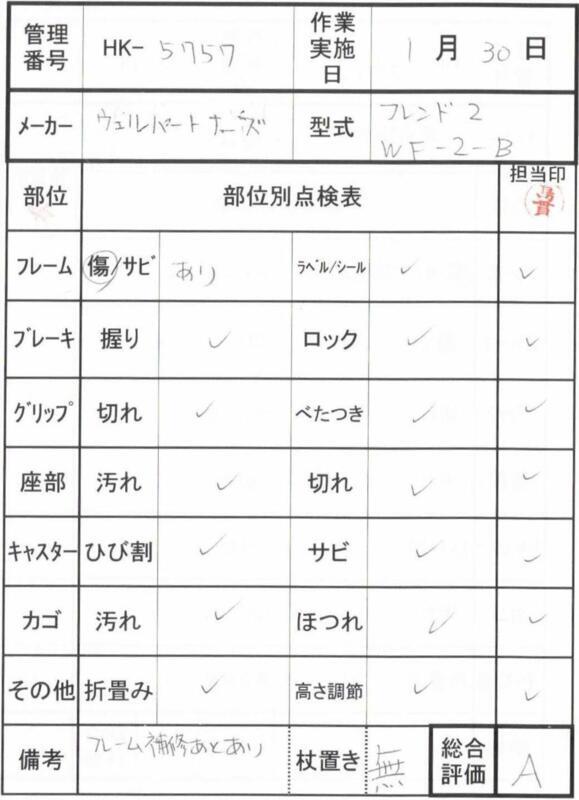 管理番号 HK- 5757 作業実施日 1月30日
メーカー ウェルパートナーズ 型式 フレンド2 WF-2-B
部位 部位別点検表 担当印
フレーム 傷/サビ あり ラベル/シール ✓ ✓
ブレーキ 握り ✓ ロック ✓ ✓
グリップ 切れ ✓ べたつき ✓ ✓
座部 汚れ ✓ 切れ ✓ ✓
キャスター ひび割 ✓ サビ ✓ ✓
カゴ 汚れ ✓ ほつれ ✓ ✓
その他 折畳み ✓ 高さ調節 ✓ ✓
備考 フレーム補修あとあり 杖置き 無 総合評価 A